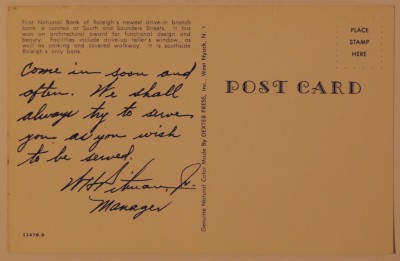 First National Bank of Raleigh's newest drive-in branch
bank is located at South and Saunders Streets. It has
won an architectural award for functional design and
beauty. Facilities include drive-up teller's window as
well as parking and covered walkway. It is southside
Raleigh's only bank.
Come in soon and
often. We shall
always try to serve
you as you wish
to be served.
W H Pitman, Jr.
Manager
Genuine Natural Color Made By DEXTER PRESS, Inc., West Nyack, N. Y.
POST CARD
PLACE
STAMP
HERE